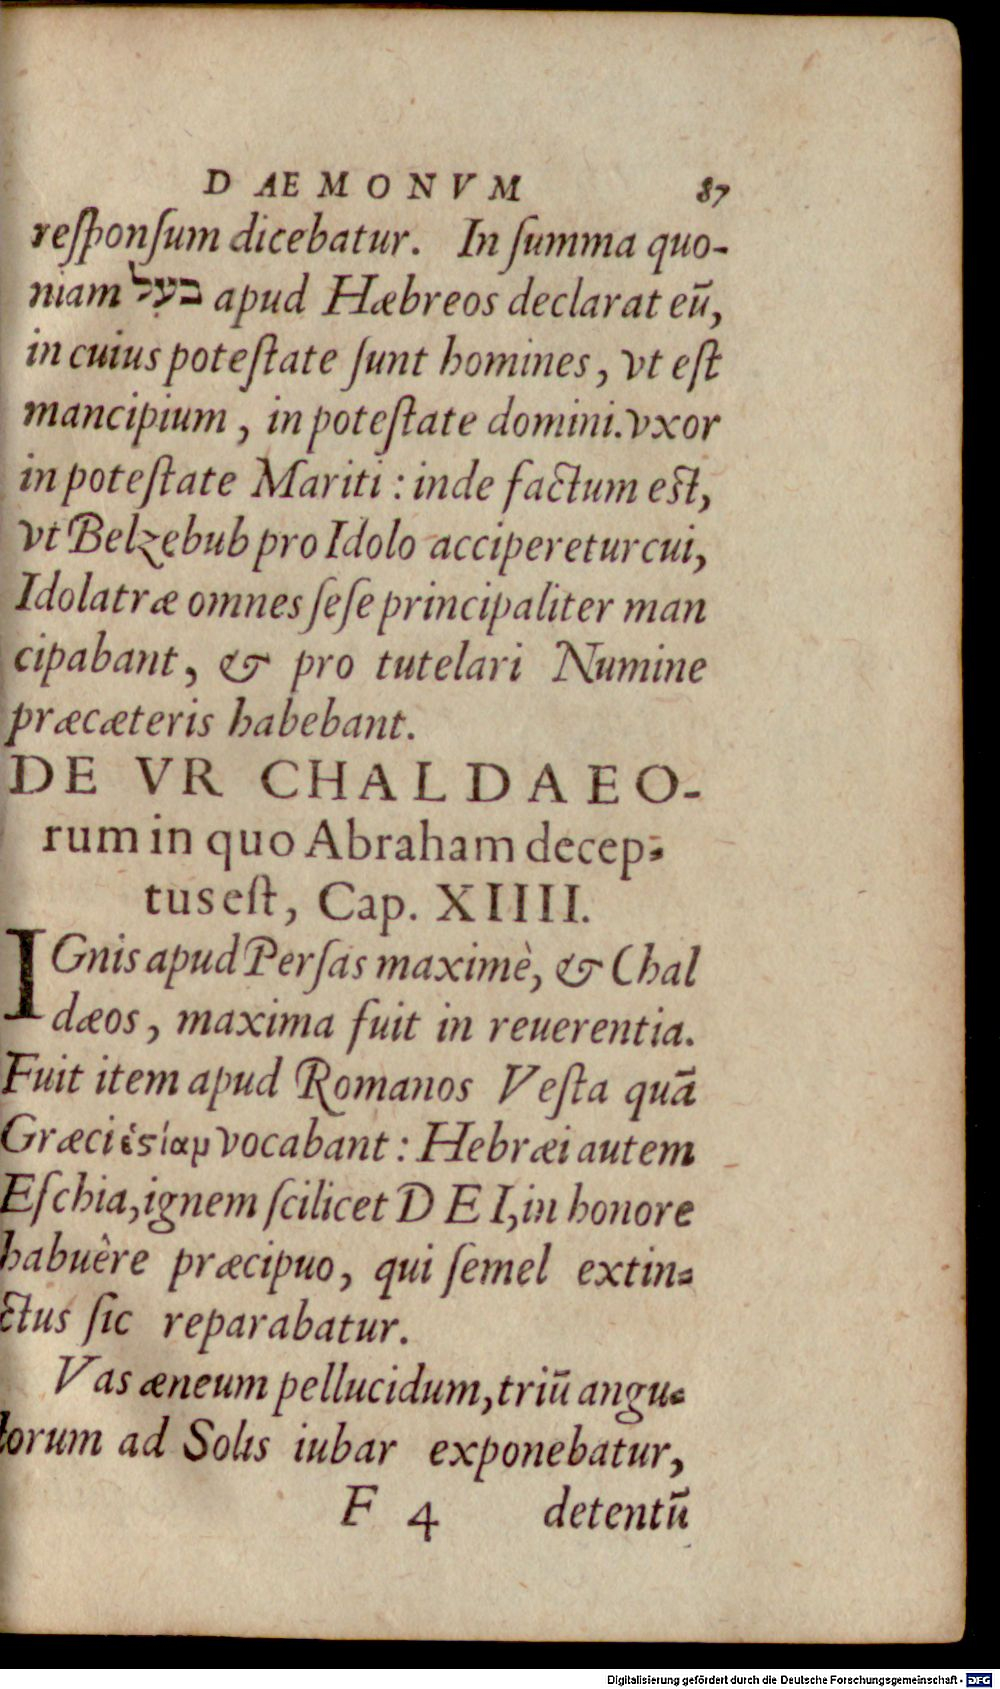 DAEMONVM 87
reſponſum dicebatur. In ſumma quo-
niam בעל apud Hæbreos declarat eũ,
in cuius poteſtate ſunt homines, vt eſt
mancipium, in poteſtate domini. vxor
in poteſtate Mariti: inde factum est,
vt Belzebub pro Idolo acciperetur cui,
Idolatræ omnes ſeſe principaliter man
cipabant, & pro tutelari Numine
præcæteris habebant.
DE VR CHALDAEO-
rum in quo Abraham decep-
tus eſt, Cap. XIIII.
IGnis apud Perſas maximè, & Chal
dæos, maxima fuit in reuerentia.
Fuit item apud Romanos Veſta quã
Græci ἑϛίαμ vocabant: Hebræi autem
Eſchia, ignem ſcilicet DEI, in honore
habuêre præcipuo, qui ſemel extin-
ctus ſic reparabatur.
Vas æneum pellucidum, triũ angu-
lorum ad Solis iubar exponebatur,
F 4 detentũ
Digitalisierung gefördert durch die Deutsche Forschungsgemeinschaft - DFG